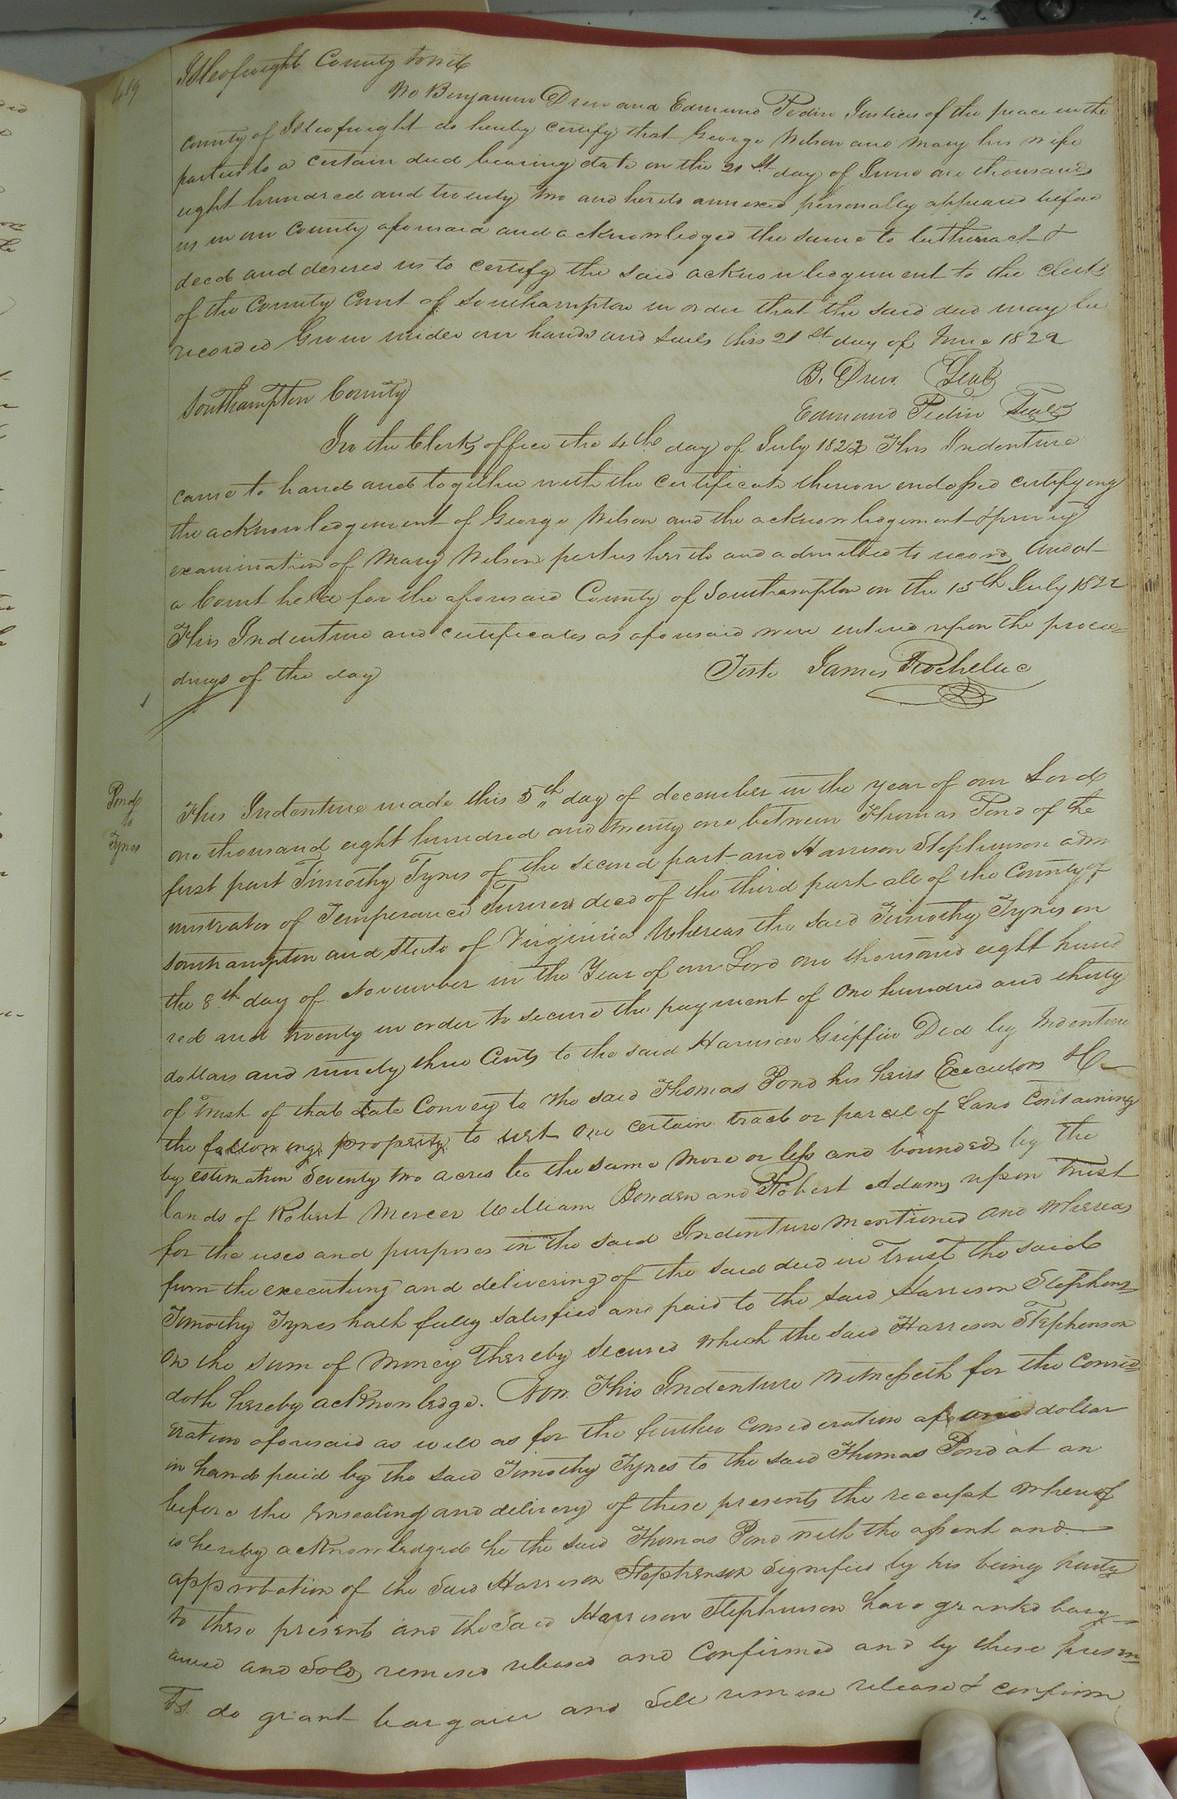 419
Isleofwight County towit
We Benjamin Drew and Edmund Pedin Justices of the peace in the
county of Isleofwight do hereby certify that George Wilson and Mary his wife
parties to a certain deed bearing date on the 21st day of June one thousand
eight hundred and twenty two and hereto annexed personally appeared before
us in our County aforesaid and acknowledged the same to be their act &
deed and desired us to certify the said acknowledgement to the Clerk
of the County Court of Southampton in order that the said deed may be
recorded Given under our hands and seals this 21st day of June 1822
B. Drew Seal
Edmund Pedin Seal
Southampton County
In the Clerks office the 4th day of July 1822 This Indenture
came to hand and together with the certificate thereon endossed certifying
the acknowledgement of George Wilson and the acknowledgement & privy
examination of Mary Wilson parties hereto and admitted to record And at
a Court held for the aforesaid County of Southampton on the 15th July 1822
This Indenture and certificates as aforesaid were entered upon the procee=
dings of the day
Teste James Rochelle C
Pond
to
Tynes
This Indenture made this 5th day of december in the year of our Lord
one thousand eight hundred and twenty one between Thomas Pond of the
first part Timothy Tynes of the second part and Harrison Stephenson adm
nistrator of Temperance Turner decd of the third part all of the County of
Southampton and State of Virginia Whereas the said Timothy Tynes on
the 8th day of November in the Year of our Lord one thousand eight hund
red and twenty in order to secure the payment of One hundred and thirty
dollars and ninety three Cents to the said Harrison Griffin Did by Indenture
of Trust of that Date Convey to the said Thomas Pond his heirs Executors &c
the following property to wit One certain tract or parcel of Land Containing
by estimation Seventy two acres be the same More or less and bounded by the
lands of Robert Mercer William Bowden and Robert Adams upon Trust
for the uses and purposes in the said Indenture Mentioned and Whereas
from the executing and delivering of the said deed in Trust the said
Timothy Tynes hath fully satisfied and paid to the said Harrison Stephens
on the sum of Money Thereby Secured Which the said Harrison Stephenson
doth hereby acknowledge. Now This Indenture Witnesseth for the Consid
eration aforesaid as well as for the further Consideration of one dollar
in hand paid by the said Timothy Tynes to the said Thomas Pond at an
before the Ensealing and delivery of these presents the receipt Whereof
is hereby acknowledged he the said Thomas Pond With the assent and
approbation of the said Harrison Stephenson Signified by his being party
to these present and the Said Harrison Stephenson have granted barg
ained and Sold remised released and Confirmed and by these presen
Ts do grant bargain and Sell remise release & confirm